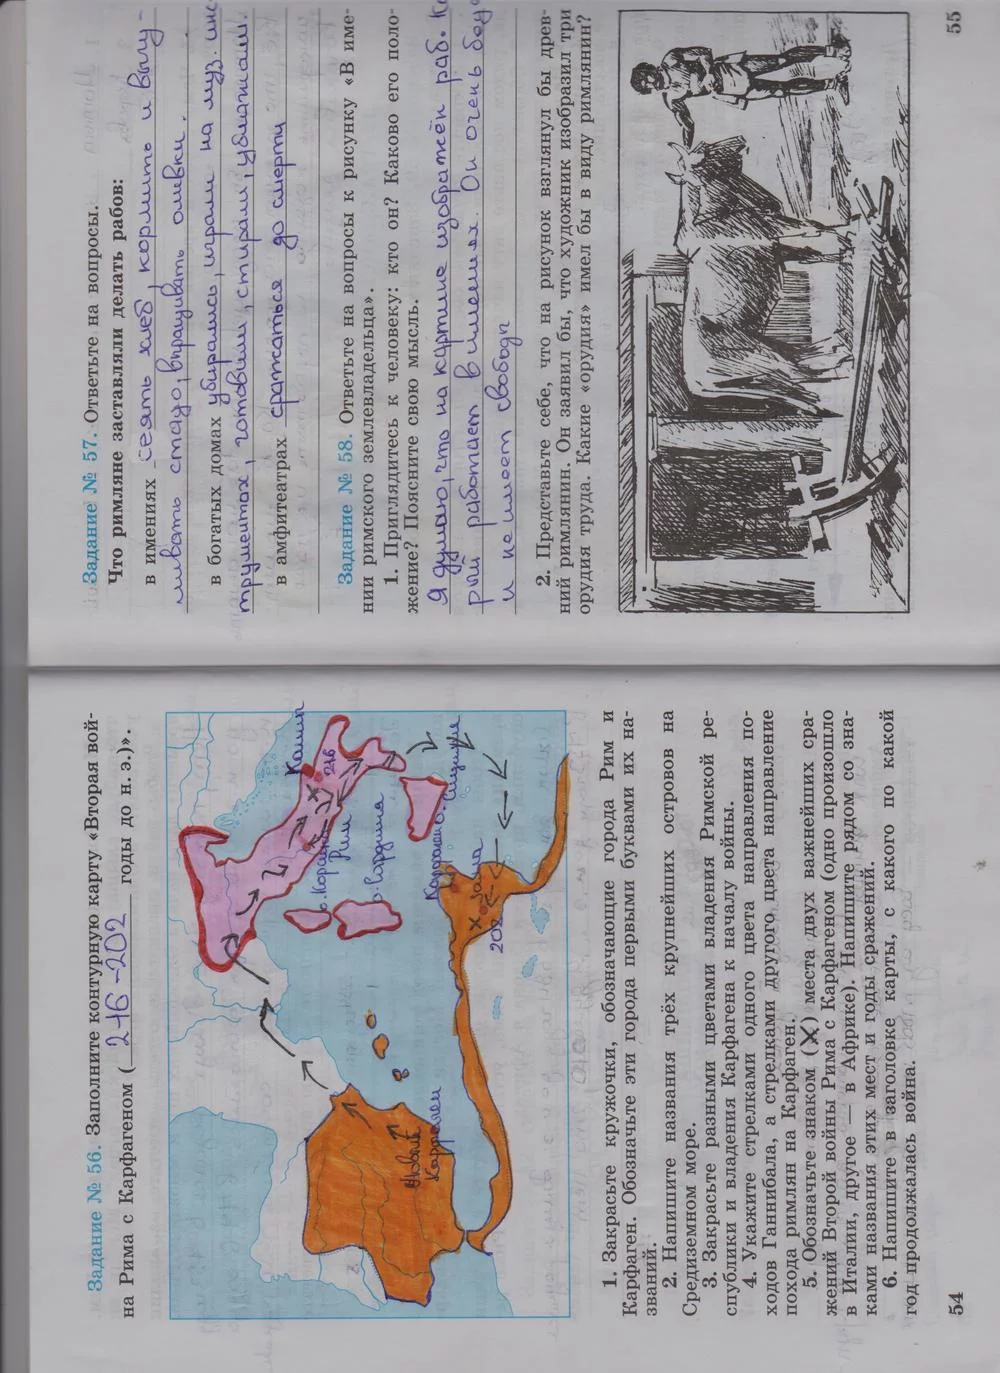 Задание № 56. Заполните контурную карту «Вторая вой-
на Рима с Карфагеном ( 216-202 годы до н. э.)».
Канны
216
Рим
о. Корсика
о. Сардиния
о. Сицилия
Карфаген
Зама
202
Новый
Карфаген
1. Закрасьте кружочки, обозначающие города Рим и
Карфаген. Обозначьте эти города первыми буквами их на-
званий.
2. Напишите названия трёх крупнейших островов на
Средиземном море.
3. Закрасьте разными цветами владения Римской ре-
спублики и владения Карфагена к началу войны.
4. Укажите стрелками одного цвета направления по-
ходов Ганнибала, а стрелками другого цвета направление
похода римлян на Карфаген.
5. Обозначьте знаком (X) места двух важнейших сра-
жений Второй войны Рима с Карфагеном (одно произошло
в Италии, другое — в Африке). Напишите рядом со зна-
ками названия этих мест и годы сражений.
6. Напишите в заголовке карты, с какого по какой
год продолжалась война.
54
Задание № 57. Ответьте на вопросы.
Что римляне заставляли делать рабов:
в имениях сеять хлеб, кормить и выгу-
ливать стадо, выращивать оливки.
в богатых домах убирались, играли на муз. инс
трументах, готовили, стирали, ублажали.
в амфитеатрах сражаться до смерти
Задание № 58. Ответьте на вопросы к рисунку «В име-
нии римского землевладельца».
1. Приглядитесь к человеку: кто он? Каково его поло-
жение? Поясните свою мысль.
Я думаю, что на картине изображён раб. Ко
рый работает в имениях. Он очень беден
и не имеет свободы
2. Представьте себе, что на рисунок взглянул бы древ-
ний римлянин. Он заявил бы, что художник изобразил три
орудия труда. Какие «орудия» имел бы в виду римлянин?
55